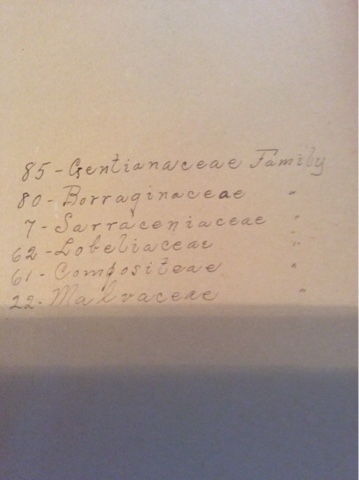 85-Gentianaceae Family
80-Borraginaceae "
7-Sarraceniaceae "
62-Lobeliaceae "
61-Compositeae "
22-Malvaceae "